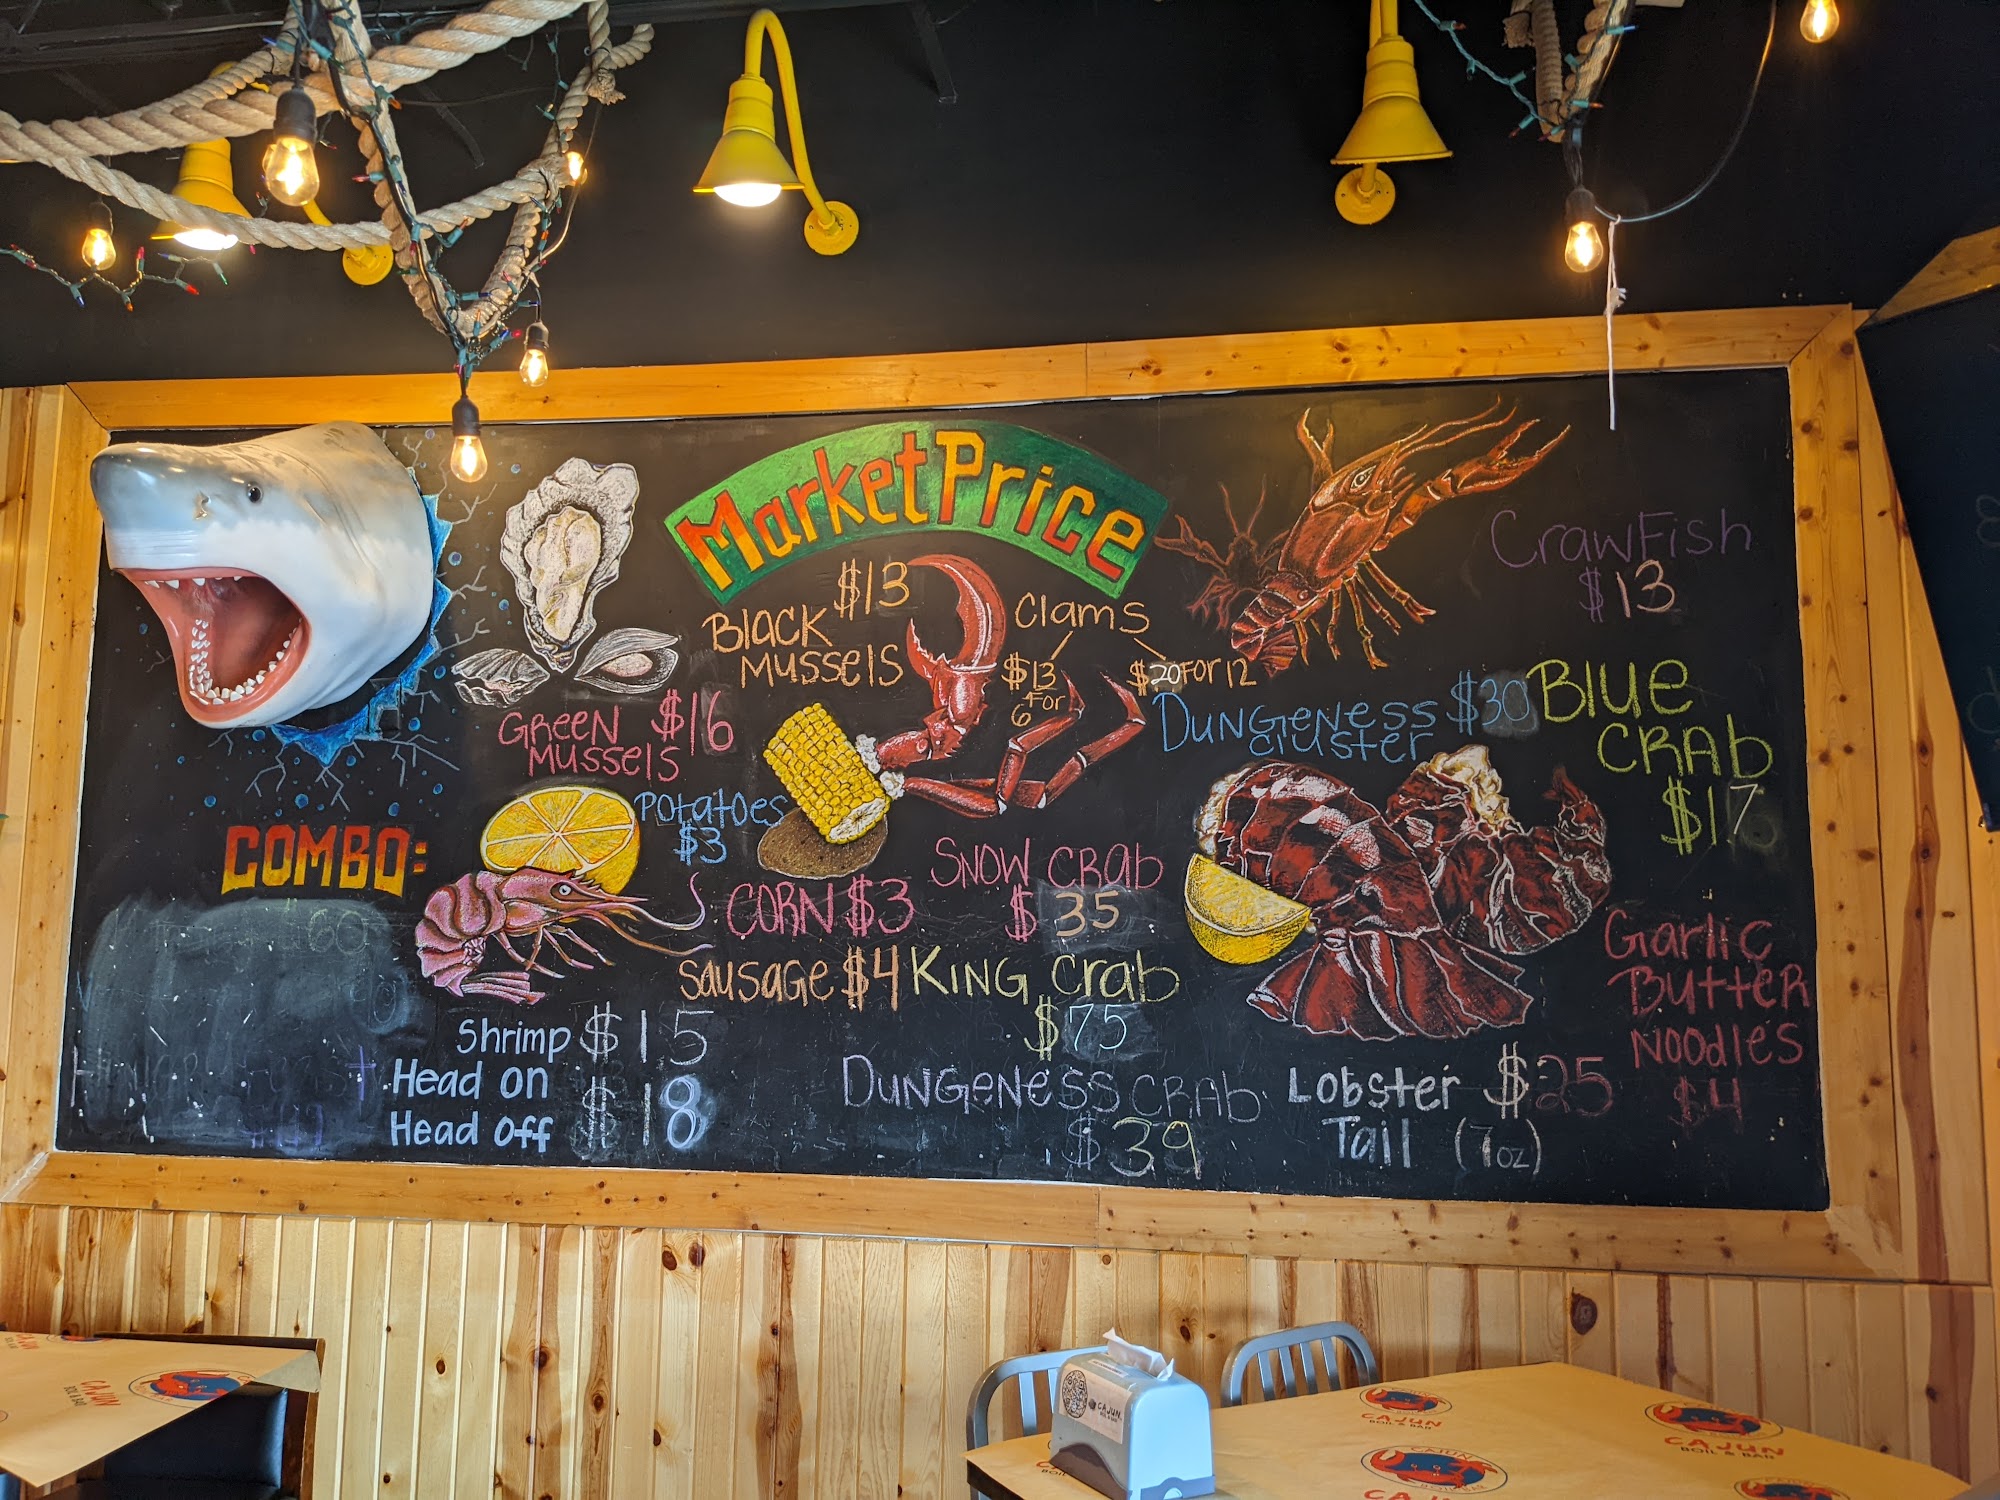 Market Price
$13
Black
Mussels
Clams
$13
For
6
$20 For 12
CrawFish
$13
Green $16
Mussels
Dungeness $30
cluster
Blue
Crab
$17
Potatoes
$3
COMBO:
60
Corn $3
Snow Crab
$35
Sausage $4
King Crab
$75
Garlic
Butter
Noodles
$4
Shrimp $15
Head on
Head off $18
Dungeness Crab
$39
Lobster $25
Tail (7oz)
CAJUN
BOIL & BAR
CAJUN
CAJUN
BOIL & BAR
CAJUN
BOIL & BAR
CAJUN
CAJUN